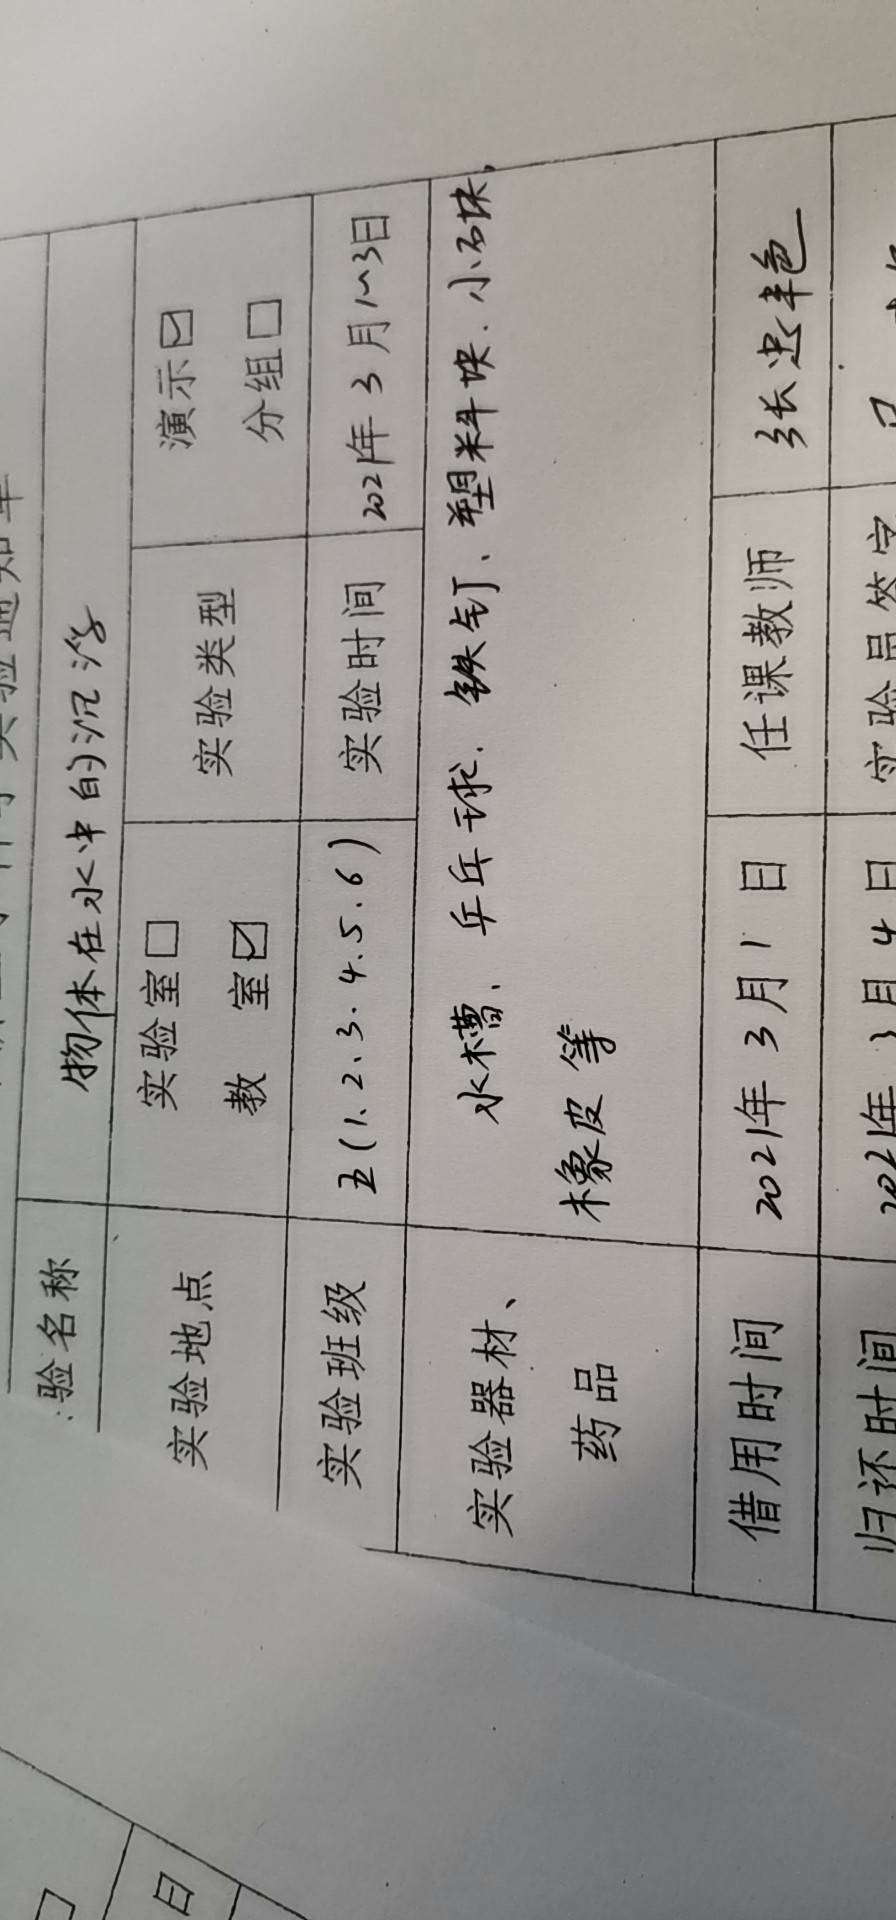 实验通知单
验名称 物体在水中的沉浮
实验地点 实验室□ 教 室☑ 实验类型 演示☑ 分组□
实验班级 五(1.2.3.4.5.6) 实验时间 2021年3月1~3日
实验器材、 水槽、乒乓球、铁钉、塑料块、小石块、
药品 橡皮等
借用时间 2021年3月1日 任课教师 张忠艳
归还时间 2021年3月4日 实验员签字
日